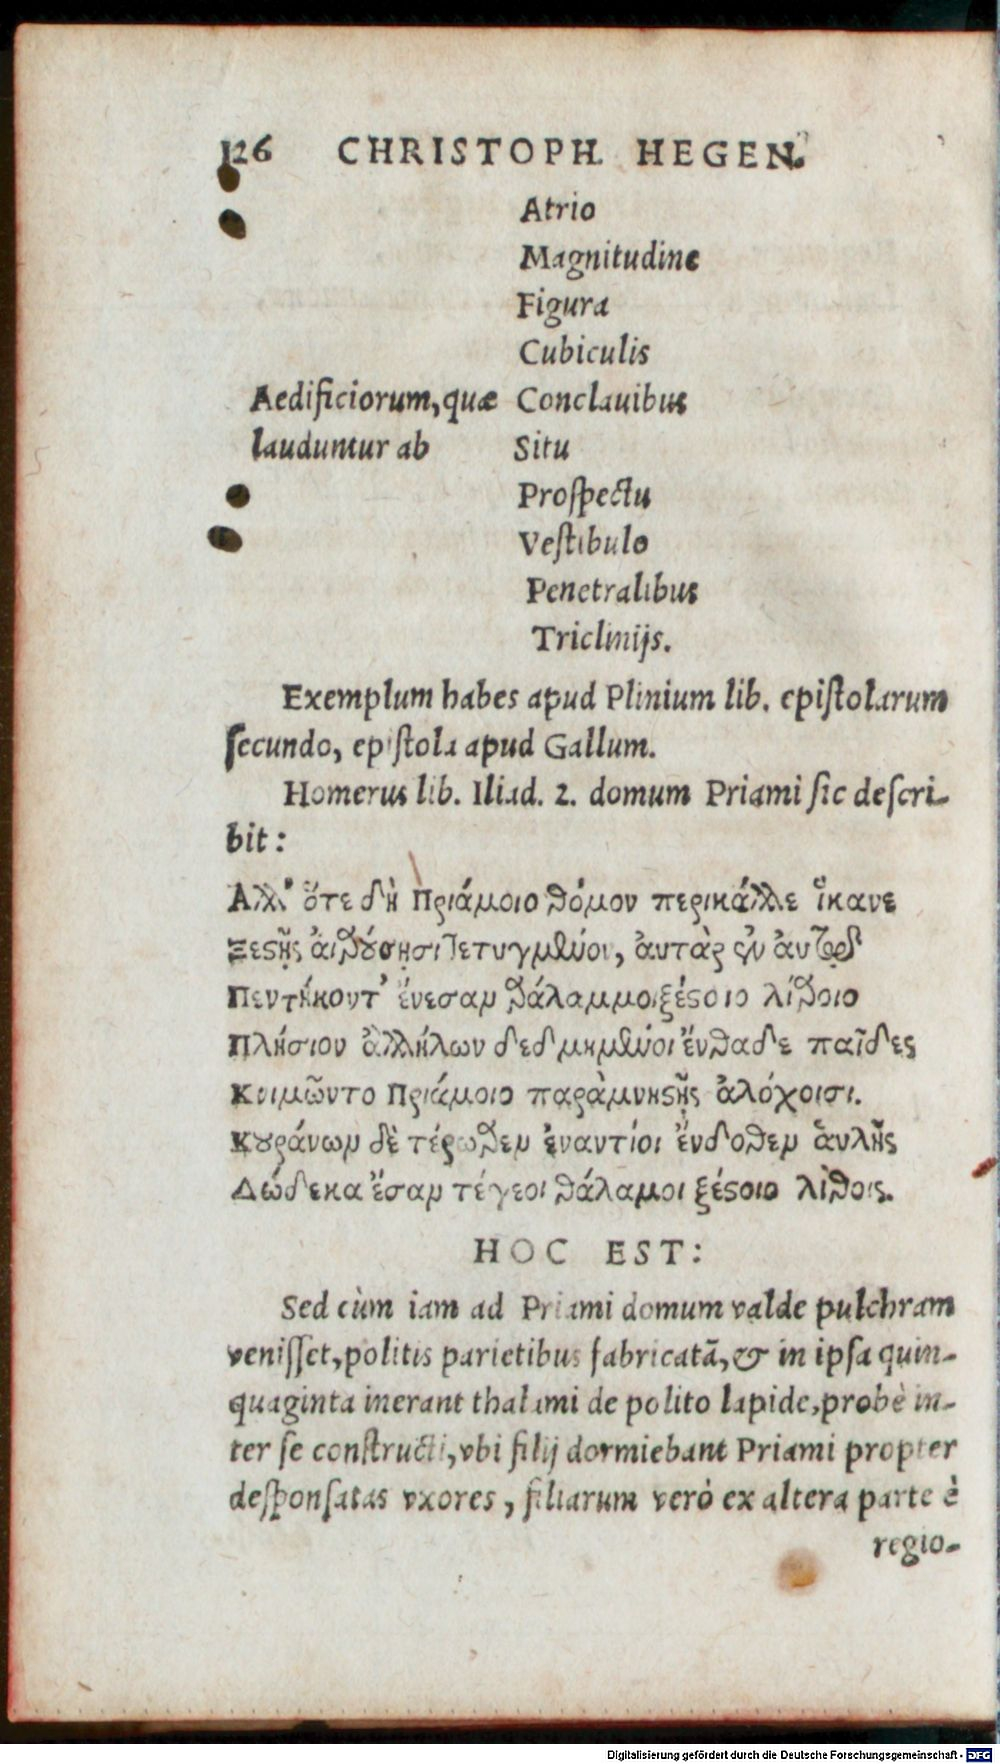 126 CHRISTOPH. HEGEN.
Atrio
Magnitudine
Figura
Cubiculis
Aedificiorum, quæ Conclauibus
lauduntur ab Situ
Proſpectu
Veſtibulo
Penetralibus
Triclinijs.
Exemplum habes apud Plinium lib. epiſtolarum
ſecundo, epiſtola apud Gallum.
Homerus lib. Iliad. 2. domum Priami ſic deſcri-
bit:
Αλλ' ὅτε δὴ Πριάμοιο θόμον περικάλλε ἵκανε
Ξεϛῇς ἀιθούσῃσι τετυγμένοι, ἀυτὰρ ἐν ἀυτῷ
Πεντήκοντ' ἔνεσαμ θάλαμμοι ξέϛοιο λίθοιο
Πλήσιον ἀλλήλων δεδμημένοι ἔνθαδε παῖδες
Κοιμῶντο Πριάμοιο παρὰ μνηϛῇς ἀλόχοισι.
Κουράνωμ δὲ τέρωθεμ ἐναντίοι ἔνδοθεμ ἀυλῆς
Δώδεκα ἔσαμ τέγεοι θάλαμοι ξέϛοιο λίθοις.
HOC EST:
Sed cùm iam ad Priami domum valde pulchram
veniſſet, politis parietibus fabricatā, & in ipſa quin-
quaginta inerant thalami de polito lapide, probè in-
ter ſe conſtructi, vbi filij dormiebant Priami propter
deſponſatas vxores, filiarum verò ex altera parte è
regio-
Digitalisierung gefördert durch die Deutsche Forschungsgemeinschaft - DFG